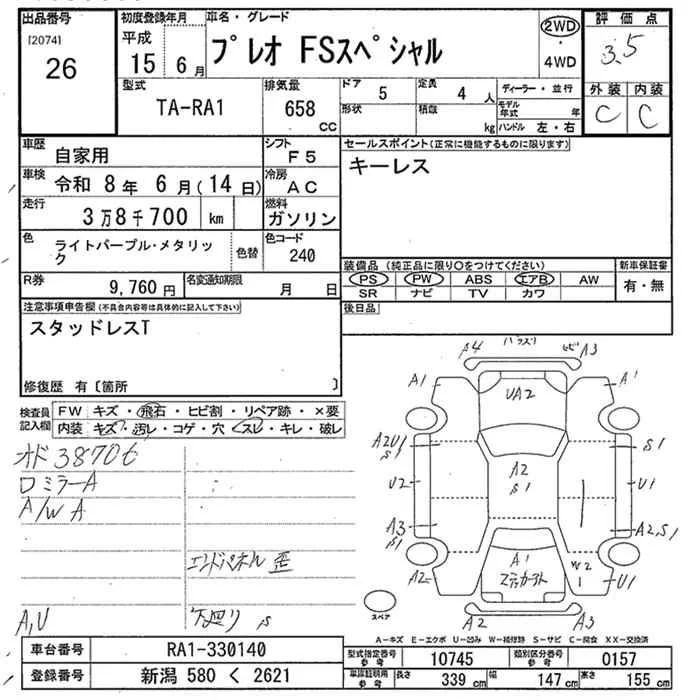 出品番号
[2074]
26
初度登録年月
平成
15年 6月
車名・グレード
プレオ FSスペシャル
2WD
・
4WD
評価点
3.5
外装
内装
C
C
型式
TA-RA1
排気量
658
CC
ドア
5
定員
4 人
形状
積載
kg
ディーラー・並行
モデル年式
年
ハンドル 左・右
車歴
自家用
シフト
F5
車検
令和 8年 6月(14日)
冷房
AC
走行
3万8千700 km
燃料
ガソリン
色
ライトパープル・メタリック
色替
色コード
240
R券
9,760円
名変通知期限
月 日
セールスポイント(正常に機能するものに限ります)
キーレス
装備品 (純正品に限り○をつけてください)
新車保証書
PS
PW
ABS
エアB
AW
有・無
SR
ナビ
TV
カワ
後日品
注意事項申告欄(不具合内容等は具体的に記入して下さい)
スタッドレスT
修復歴 有〔箇所 〕
検査員
記入欄
FW キズ・飛石・ヒビ割・リペア跡・×要
内装 キズ・汚レ・コゲ・穴・スレ・キレ・破レ
オド 3870セ
ロミラーA
A/W A
エンドパネル 歪
A,U
下廻り S
A4
A3
A1
UA2
A1
A2U1
S1
S1
U2
A2
S1
U1
A3
S1
A2,S1
A2
A1
W2
1
U1
A2
A3
スペア
A−キズ E−エクボ U−凹み W−補修跡 S−サビ C−腐食 XX−交換済
車台番号
RA1-330140
登録番号
新潟 580 く 2621
型式指定番号
参考
10745
類別区分番号
参考
0157
車庫証明用
参考
長さ
339 cm
幅
147 cm
高さ
155 cm